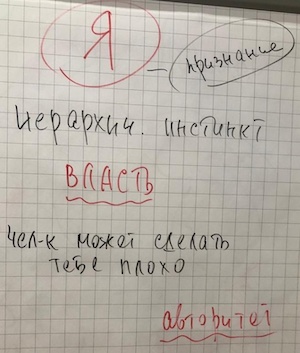 Я
признание
Иерархич. инстинкт
ВЛАСТЬ
Чел-к может сделать
тебе плохо
авторитет